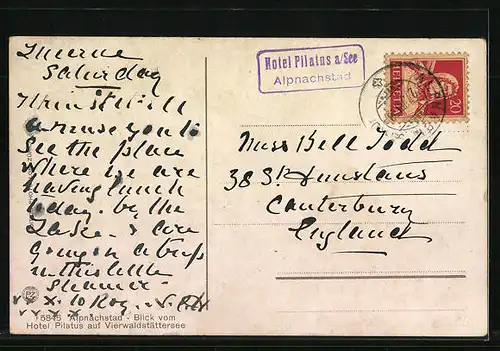 Lucerne
Saturday
I think it will
amuse you to
see the place
where we are
having lunch
today. by the
Lake & are
going on a trip
in this little
steamer
x x x. to Rog.
5845 Alpnachstad - Blick vom
Hotel Pilatus auf Vierwaldstättersee
Hotel Pilatus a/See
Alpnachstad
HELVETIA
20
Miss Bell Todd
38 St. Dunstans
Canterbury
England